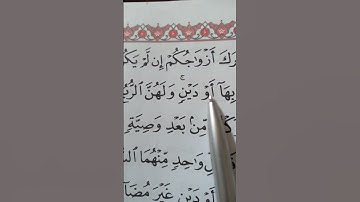 رَكَ أَزْوَٰجُكُمْ إِن لَّمْ يَكُ
بِهَآ أَوْ دَيْنٍۚ وَلَهُنَّ ٱلرُّبُ
مِّنۢ بَعْدِ وَصِيَّةٍ
وَٰحِدٍ مِّنْهُمَا
أَوْ دَيْنٍ غَيْرَ مُضَآ